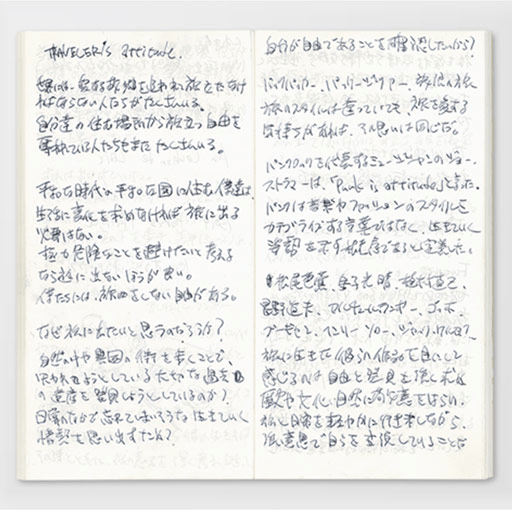 TRAVELER'S attitude.
世界には、愛する故郷を追われ旅をしなけ
ればならない人たちがたくさんいる。
自分達の住む場所から旅立つ自由を
奪われている人たちもまたたくさんいる。
平和な時代の平和な国に住む僕達は
生活に変化を求めなければ旅に出る
必要はない。
極力危険なことを避けたいと考える
なら旅に出ないほうが良い。
僕たちには、旅をしない自由がある。
なぜ旅に出たいと思うのだろうか?
自然の中や異国の街を歩くことで、
失われようとしている大切な過去
の遺産を発見しようとしているのか?
日常のなかで忘れてしまいそうな生きていく
情熱を思い出すため?
自分が自由であることを確認したいから?
バックパッカー、バッリージツアー、
旅のスタイルは違っていても、旅を愛する
気持ちがあれば、その思いは同じだ。
パンクロックを代表するミュージシャンのジョー・
ストラマーは、「Punk is attitude」と言った。
パンクは音楽やファッションのスタイルを
カテゴライズする言葉ではなく、生きていく
姿勢を示す態度であると定義した。
松尾芭蕉、金子光晴、植村直己、
星野道夫、ゴッホ、
ゴーギャン、ヘンリー・ソロー、ジャック・ケルアック
旅に生きた彼らの作品を目にして
感じるのは自由と発見を強く求め
歴史や文化、自然に敬意をはらい、
旅と日常を軽やかに行き来しながら、
強い意思で自らを表現していることだ